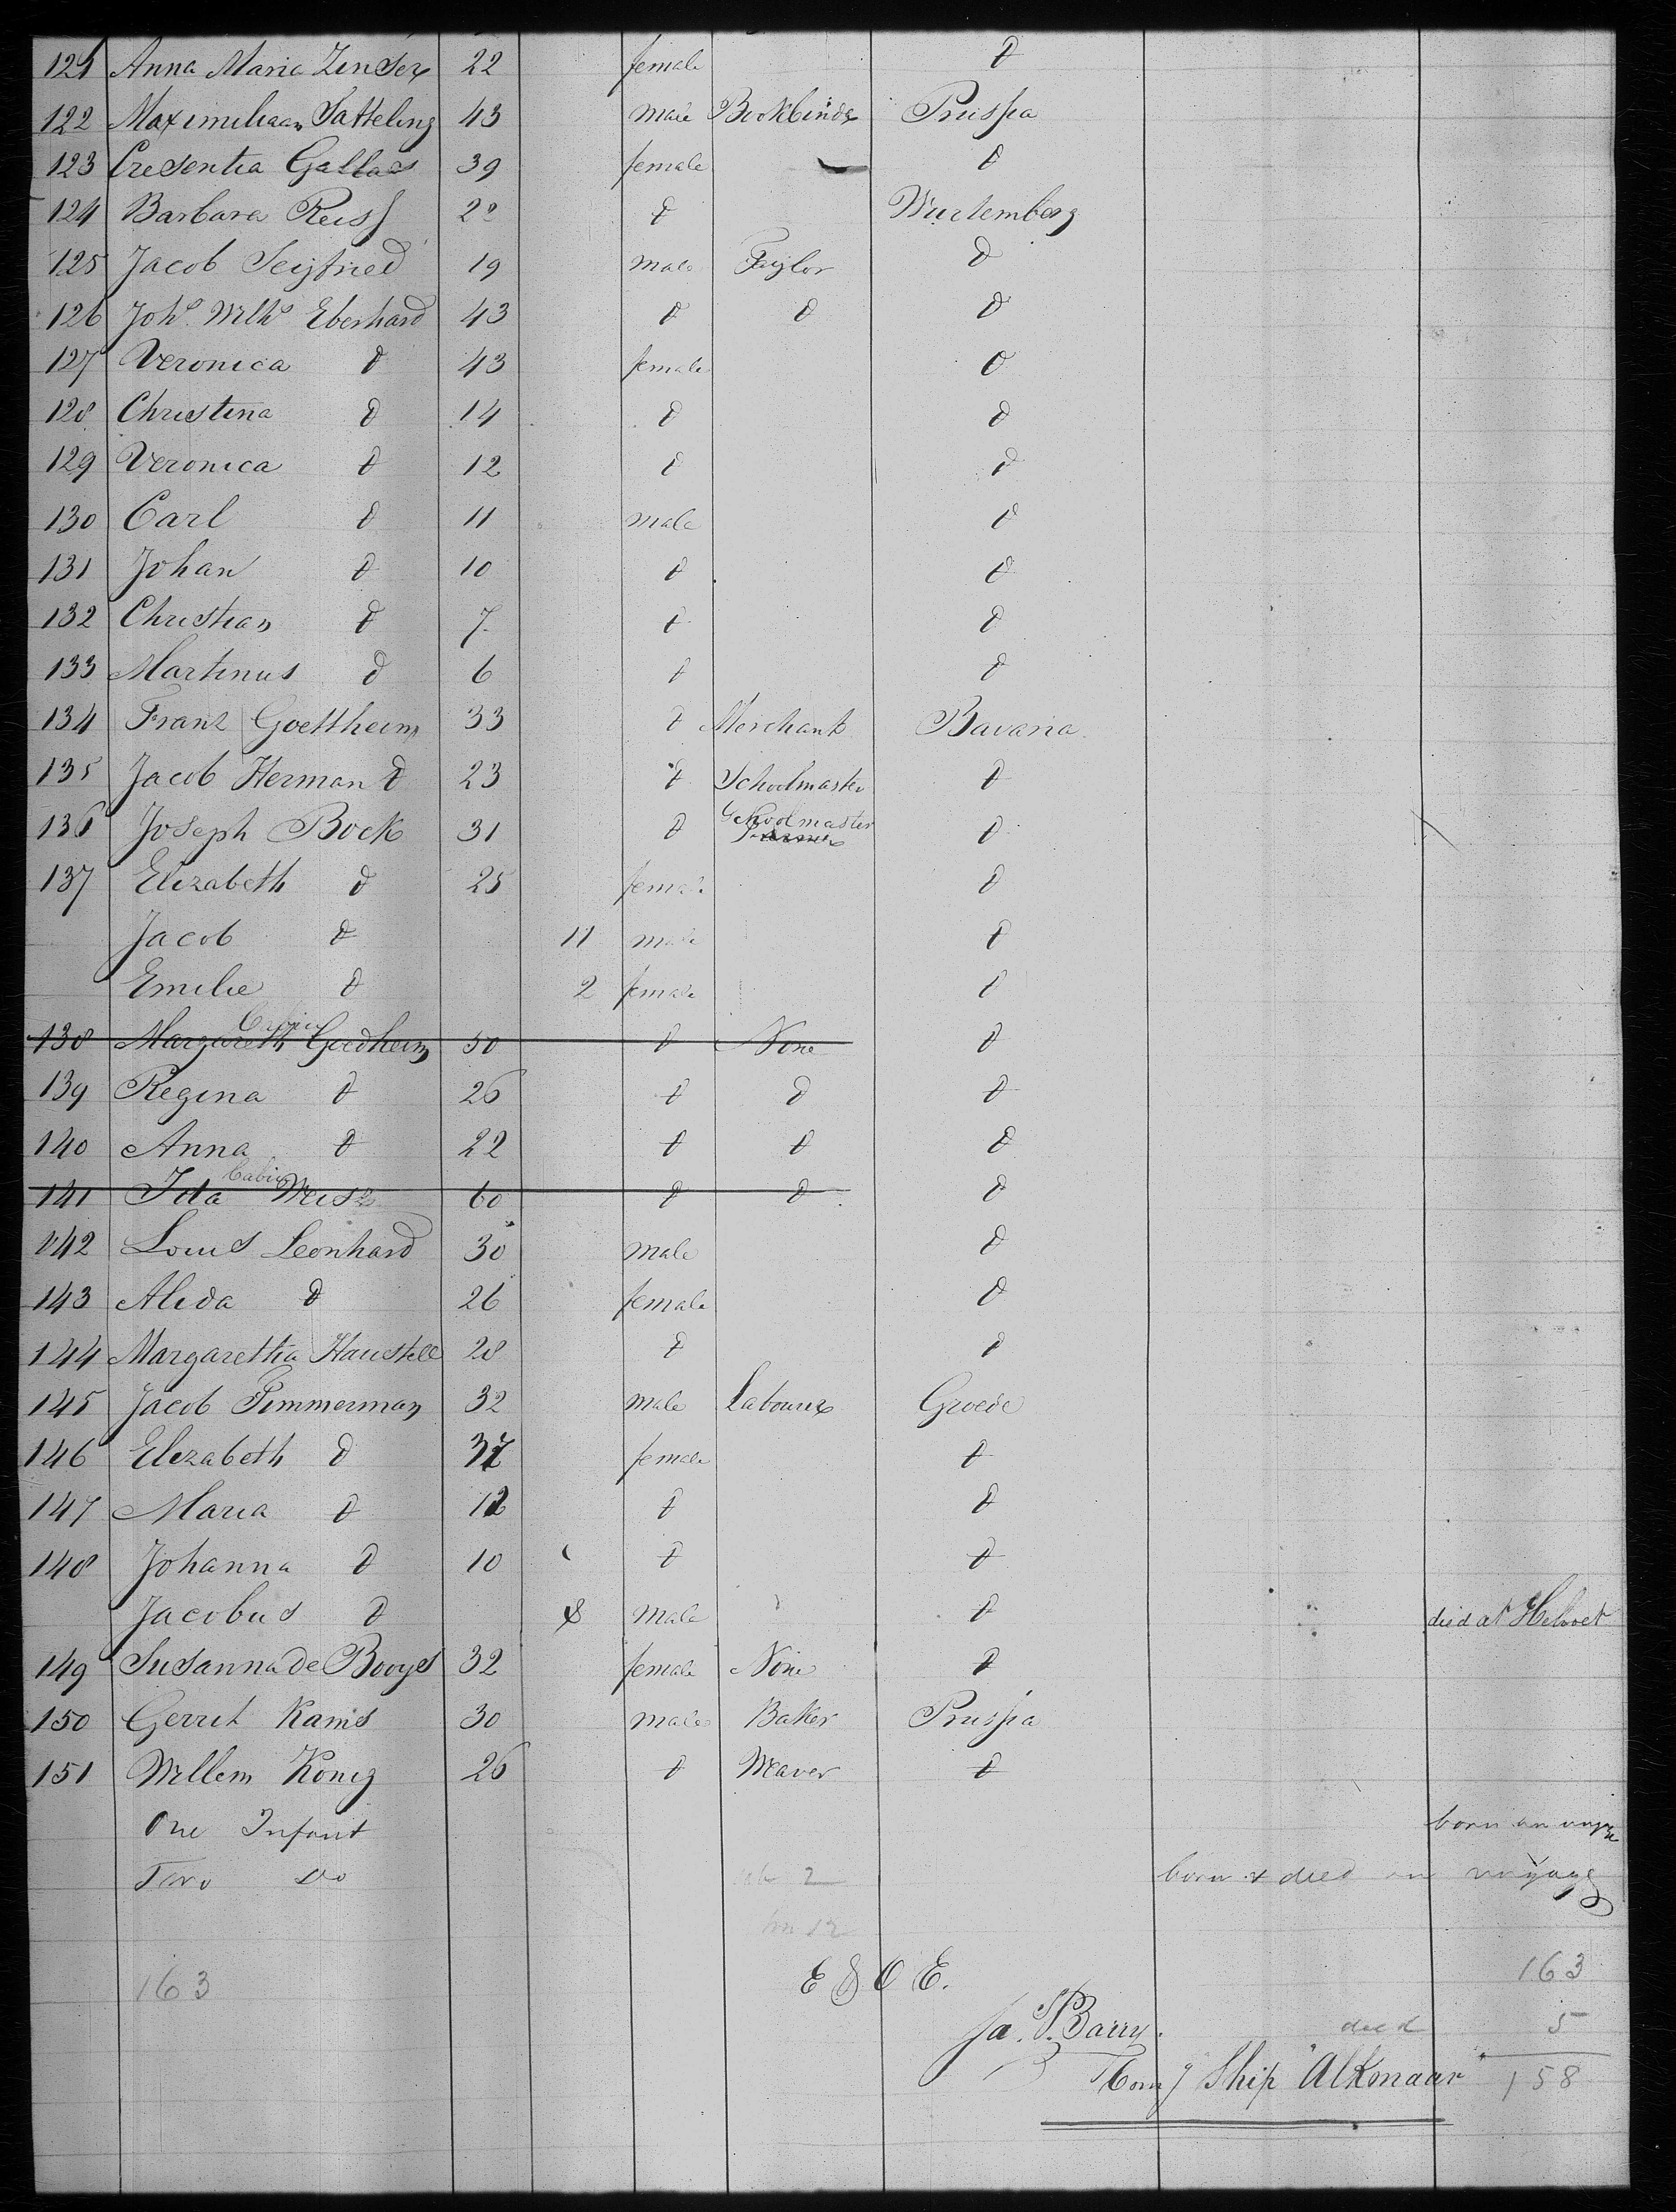 121 Anna Maria Zinser 22 female d
122 Maximiliaan Satteling 43 male Bookbinder Prussia
123 Cresentia Gallas 39 female d
124 Barbara Reiss 20 d Wurtemberg
125 Jacob Seyfried 19 male Taylor d
126 Johs. Wilhs Eberhard 43 d d d
127 Veronica d 43 female d
128 Christina d 14 d d
129 Veronica d 12 d d
130 Carl d 11 male d
131 Johan d 10 d d
132 Christian d 7 d d
133 Martinus d 6 d d
134 Franz Goettheim 33 d Merchant Bavaria
135 Jacob Herman d 23 d Schoolmaster d
136 Joseph Bock 31 d Schoolmaster d
137 Elizabeth d 25 female d
Jacob d 11 male d
Emilie d 2 female d
Cabin
138 Margareth Goedheim 50 d None d
139 Regina d 26 d d d
140 Anna d 22 d d d
Cabin
141 Ida Weis 60 d d d
142 Louis Leonhard 30 male d
143 Alida d 26 female d
144 Margaretha Haustell 28 d d
145 Jacob Timmerman 32 male Labourer Groede
146 Elizabeth d 37 female d
147 Maria d 12 d d
148 Johanna d 10 d d
Jacobus d 8 male d died at Helvoet
149 Susanna de Booys 32 female None d
150 Gerrit Kams 30 male Baker Prussia
151 Willem Konig 26 d Weaver d
One Infant born on voyge
Two Do born & died on voyage
163 E & O E. 163
Ja. S. Barry. died 5
Comg Ship "Alkmaar" 158